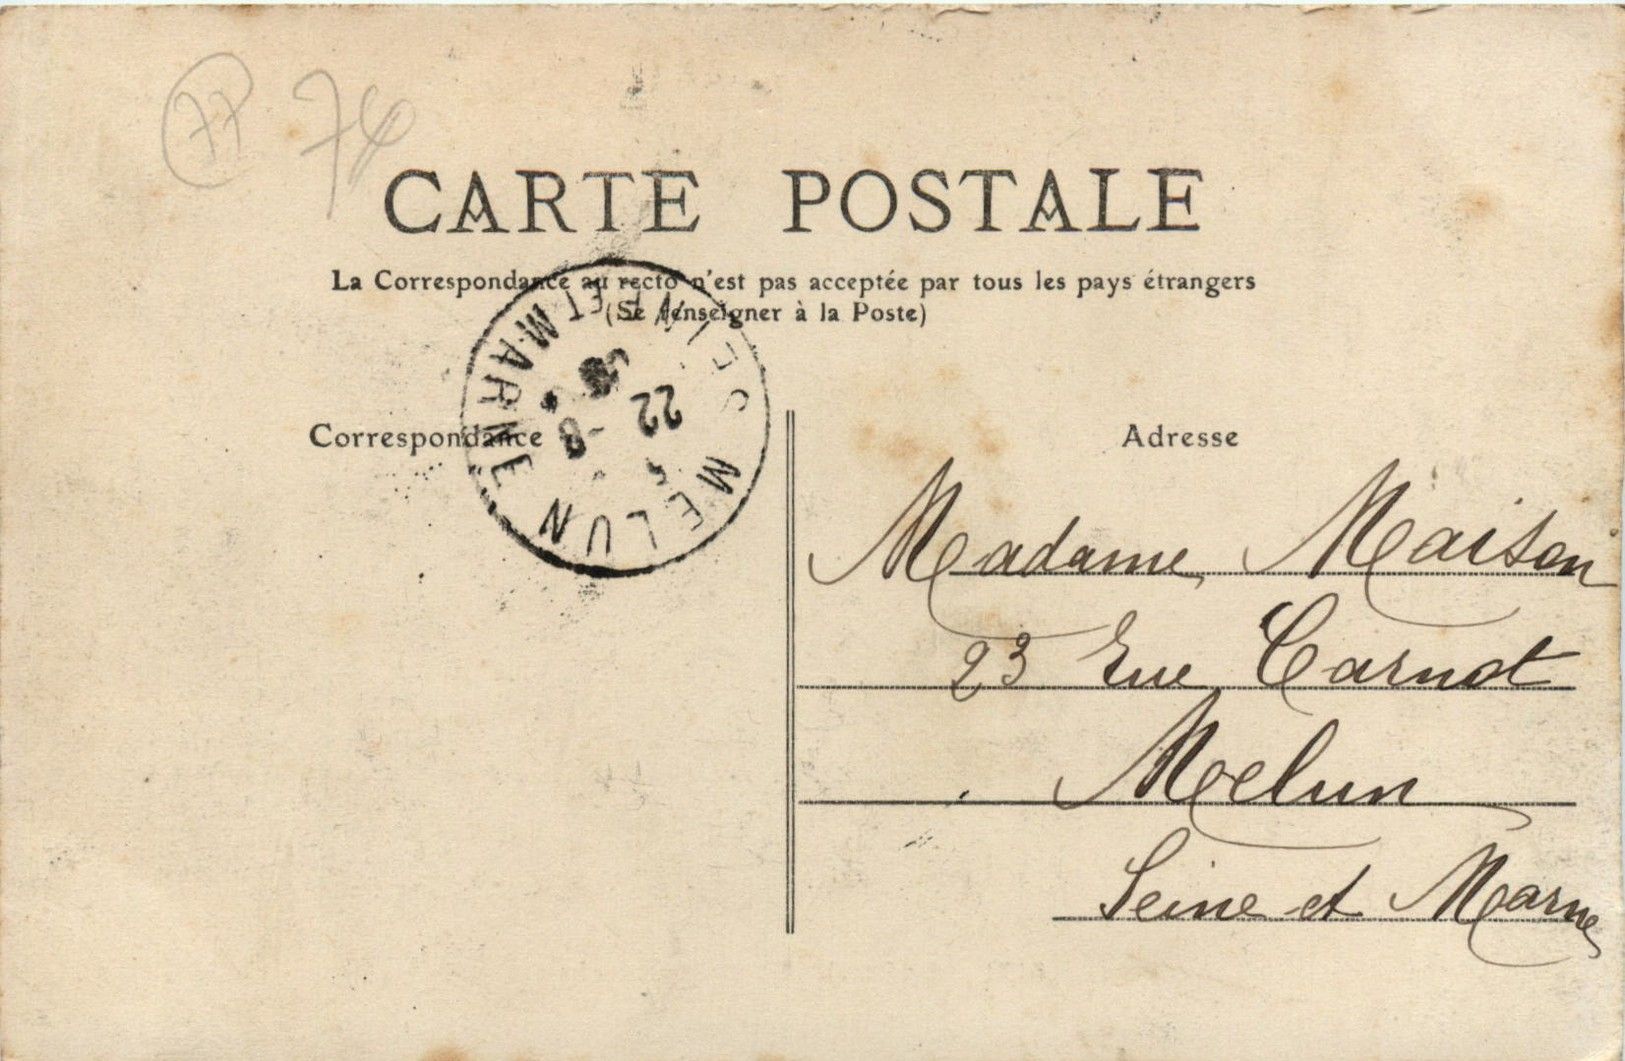 77 76
CARTE POSTALE
La Correspondance au recto n'est pas acceptée par tous les pays étrangers
(Se renseigner à la Poste)
Correspondance
Adresse
MELUN
SEINE ET MARNE
22 -8
Madame Maison
23 Rue Carnot
Melun
Seine et Marne